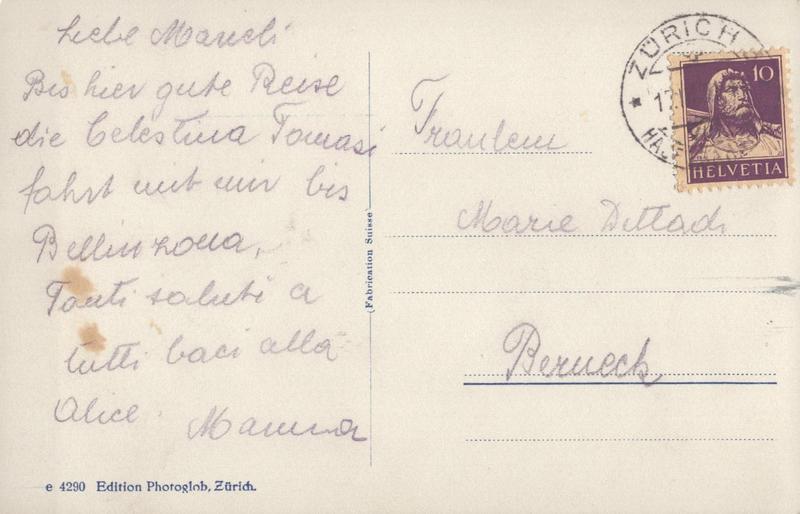 Liebe Marieli
Bis hier gute Reise
die Celestina Tomasi
fahrt mit mir bis
Bellinzona,
Tanti saluti a
tutti baci alla
Alice. Mamma
Fräulein
Marie Delladi
Berneck
(Fabrication Suisse)
ZÜRICH
10
HELVETIA
e 4290 Edition Photoglob, Zürich.